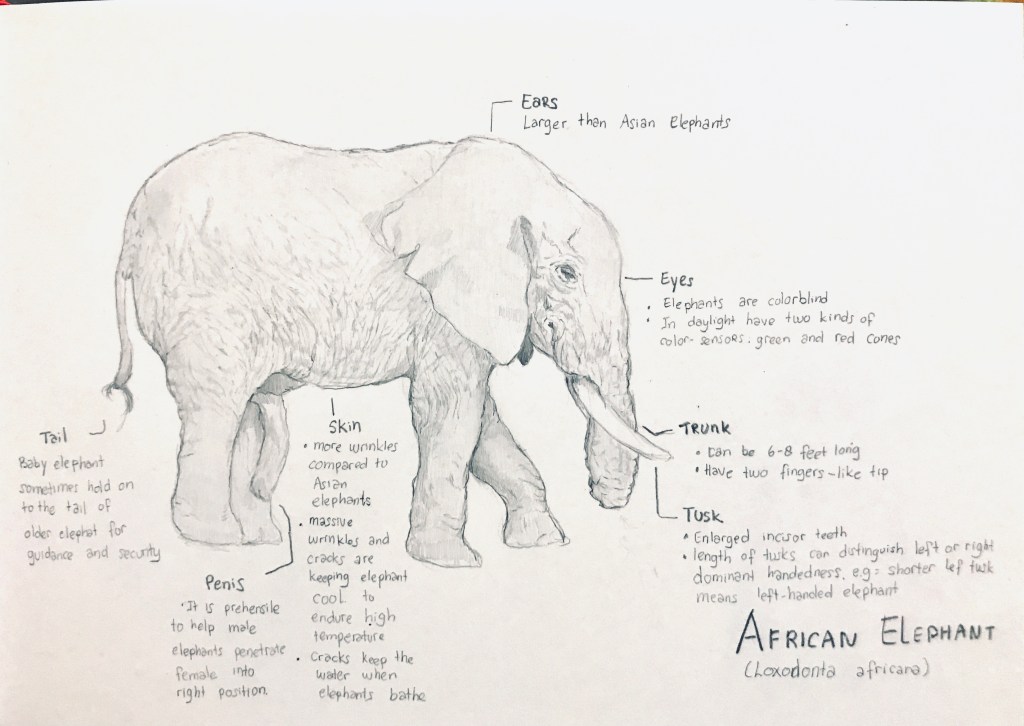 EARS
Larger than Asian Elephants
Eyes
• Elephants are colorblind
• In daylight have two kinds of
color-sensors. green and red cones
TRUNK
• can be 6-8 feet long
• Have two fingers-like tip
TUSK
• Enlarged incisor teeth
• length of tusks can distinguish left or right
dominant handedness. e.g = shorter lef tusk
means left-handed elephant
Skin
• more wrinkles
compared to
Asian
elephants
• massive
wrinkles and
cracks are
keeping elephant
cool to
endure high
temperature
• Cracks keep the
water when
elephants bathe
Tail
Baby elephant
sometimes hold on
to the tail of
older elephat for
guidance and security
Penis
• It is prehensile
to help male
elephants penetrate
female into
right position.
AFRICAN ELEPHANT
(Loxodonta africana)